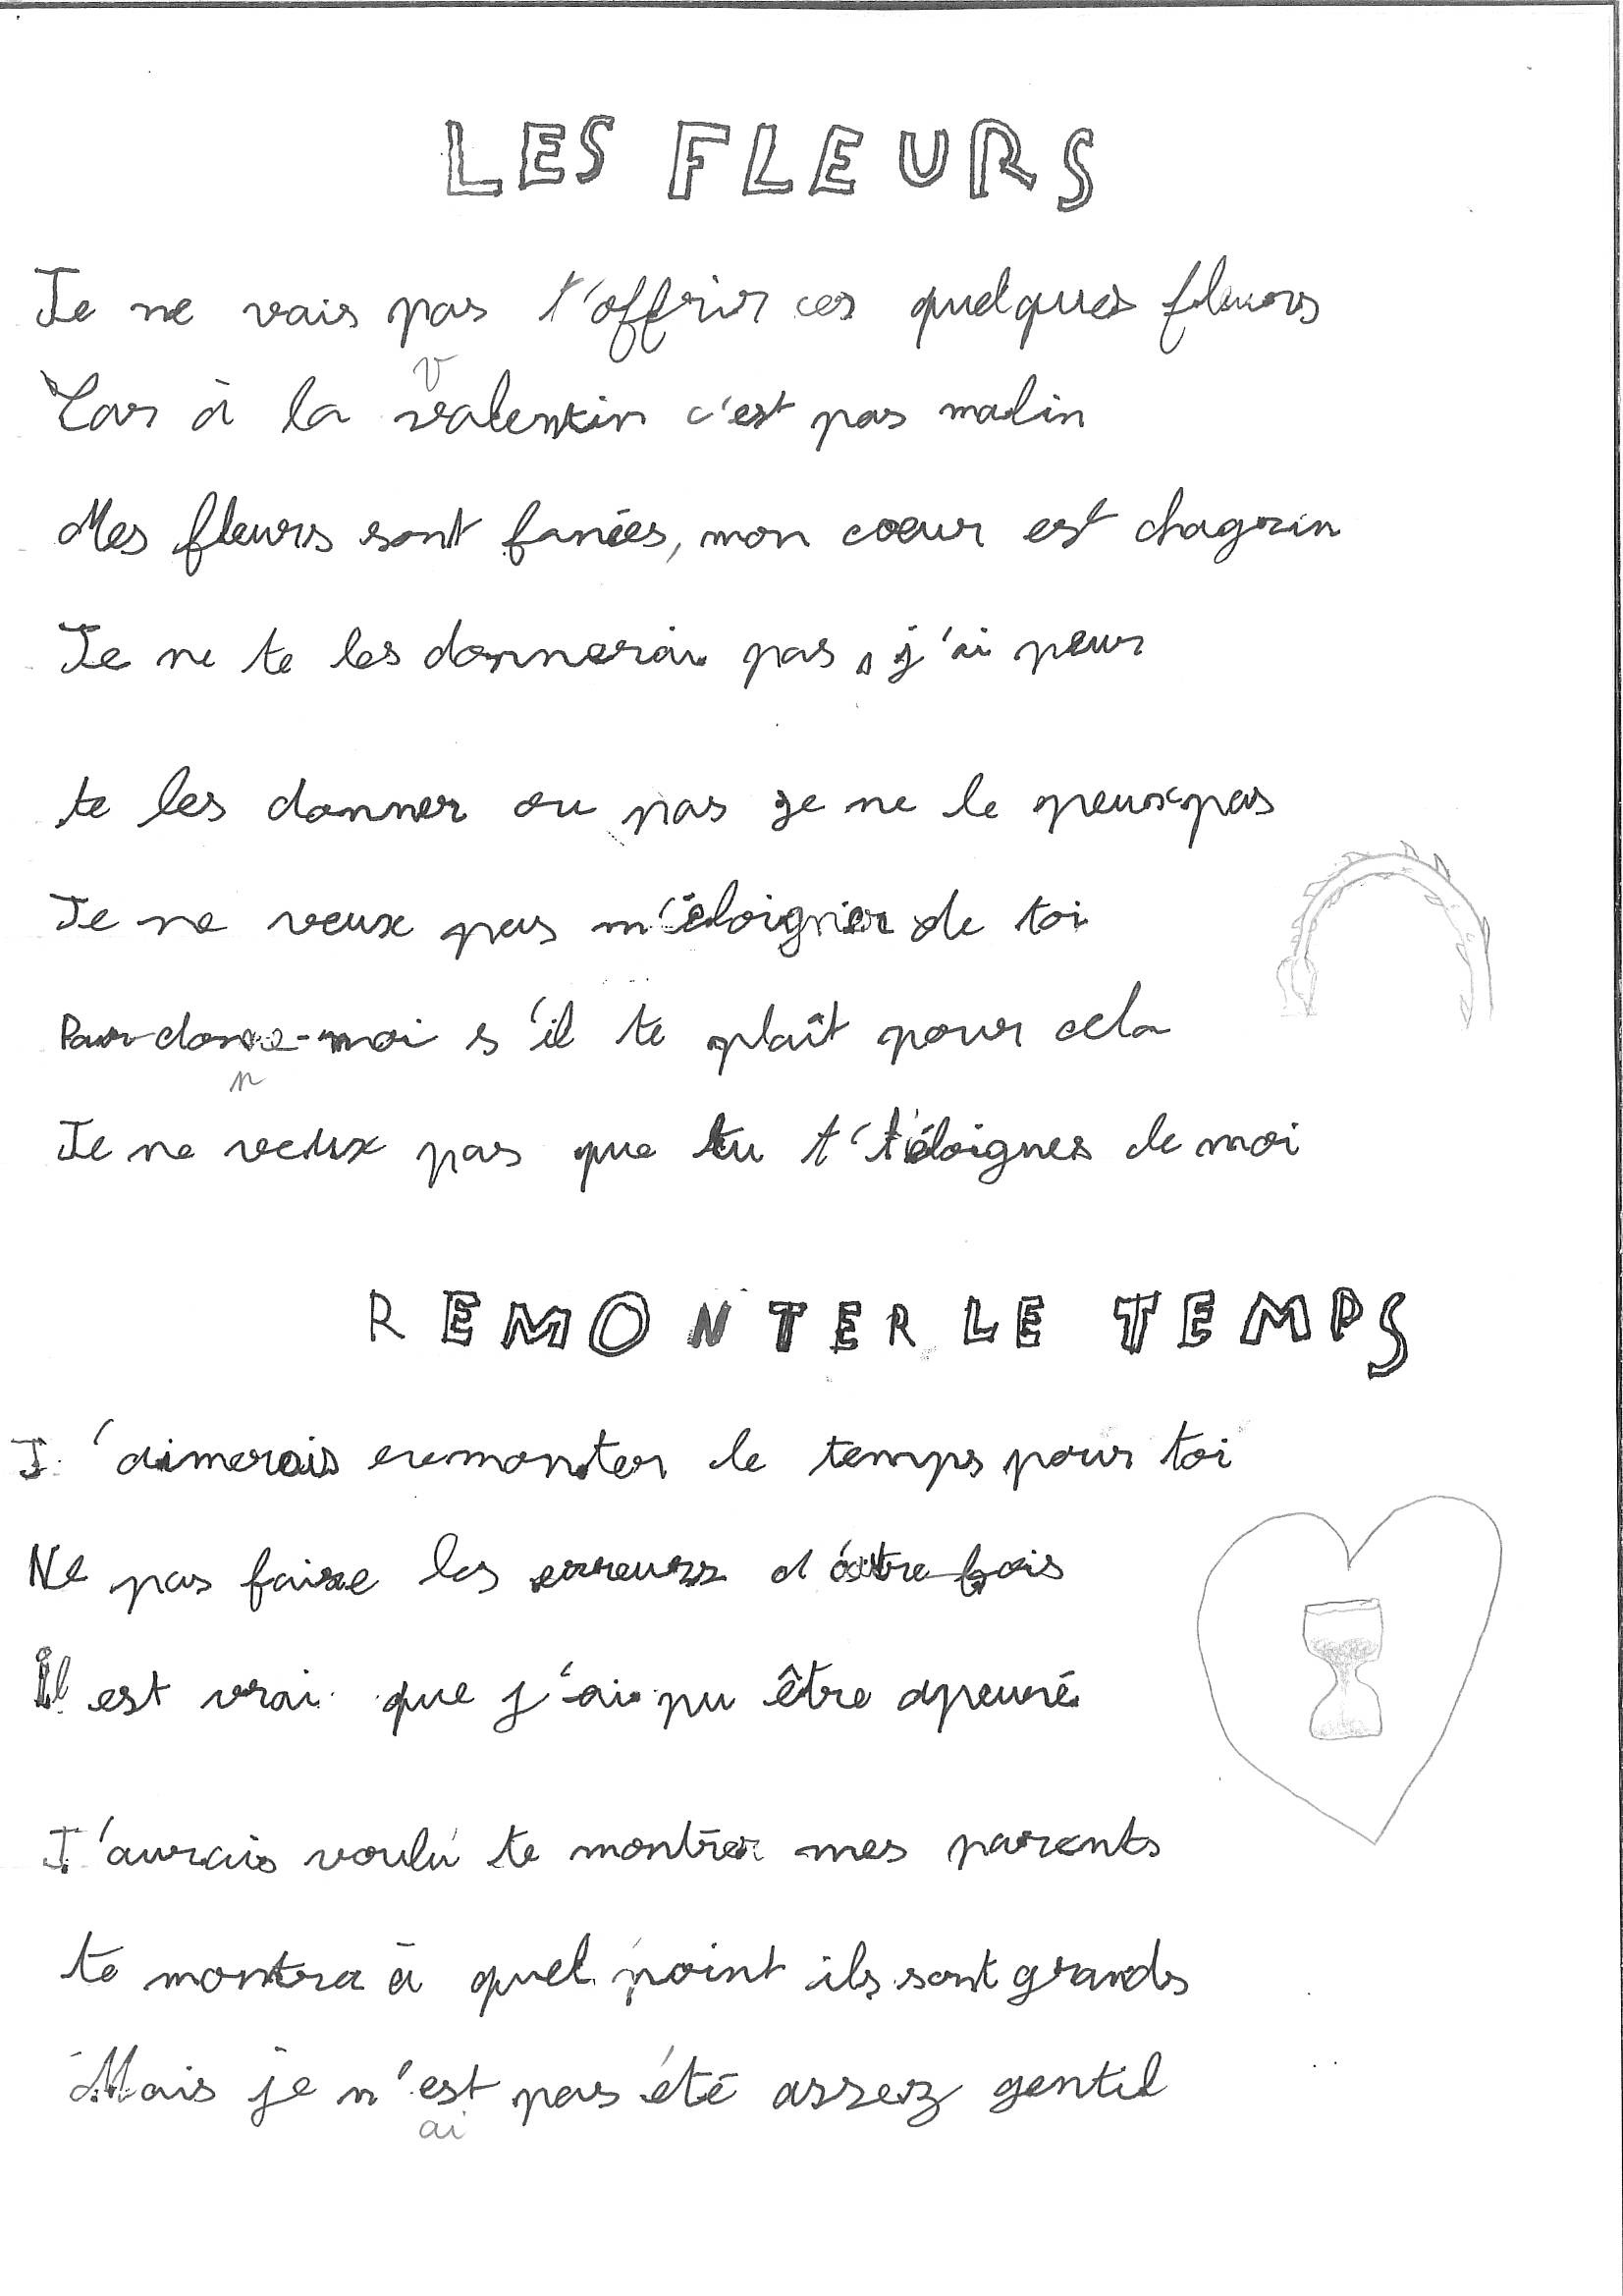 LES FLEURS
Je ne vais pas t'offrir ces quelques fleurs
v
Car à la valentin c'est pas malin
Mes fleurs sont fanées, mon coeur est chagrin
Je ne te les donnerai pas, j'ai peur
te les donner ou pas je ne le peux pas
Je ne veux pas m'éloigner de toi
Pardonne-moi s'il te plaît pour cela
n
Je ne veux pas que tu t'éloignes de moi
REMONTER LE TEMPS
J'aimerais remonter le temps pour toi
Ne pas faire les erreurs d'autre fois
Il est vrai que j'ai pu être apeuré
J'aurais voulu te montrer mes parents
te montra à quel point ils sont grands
Mais je n'est pas été assez gentil
ai